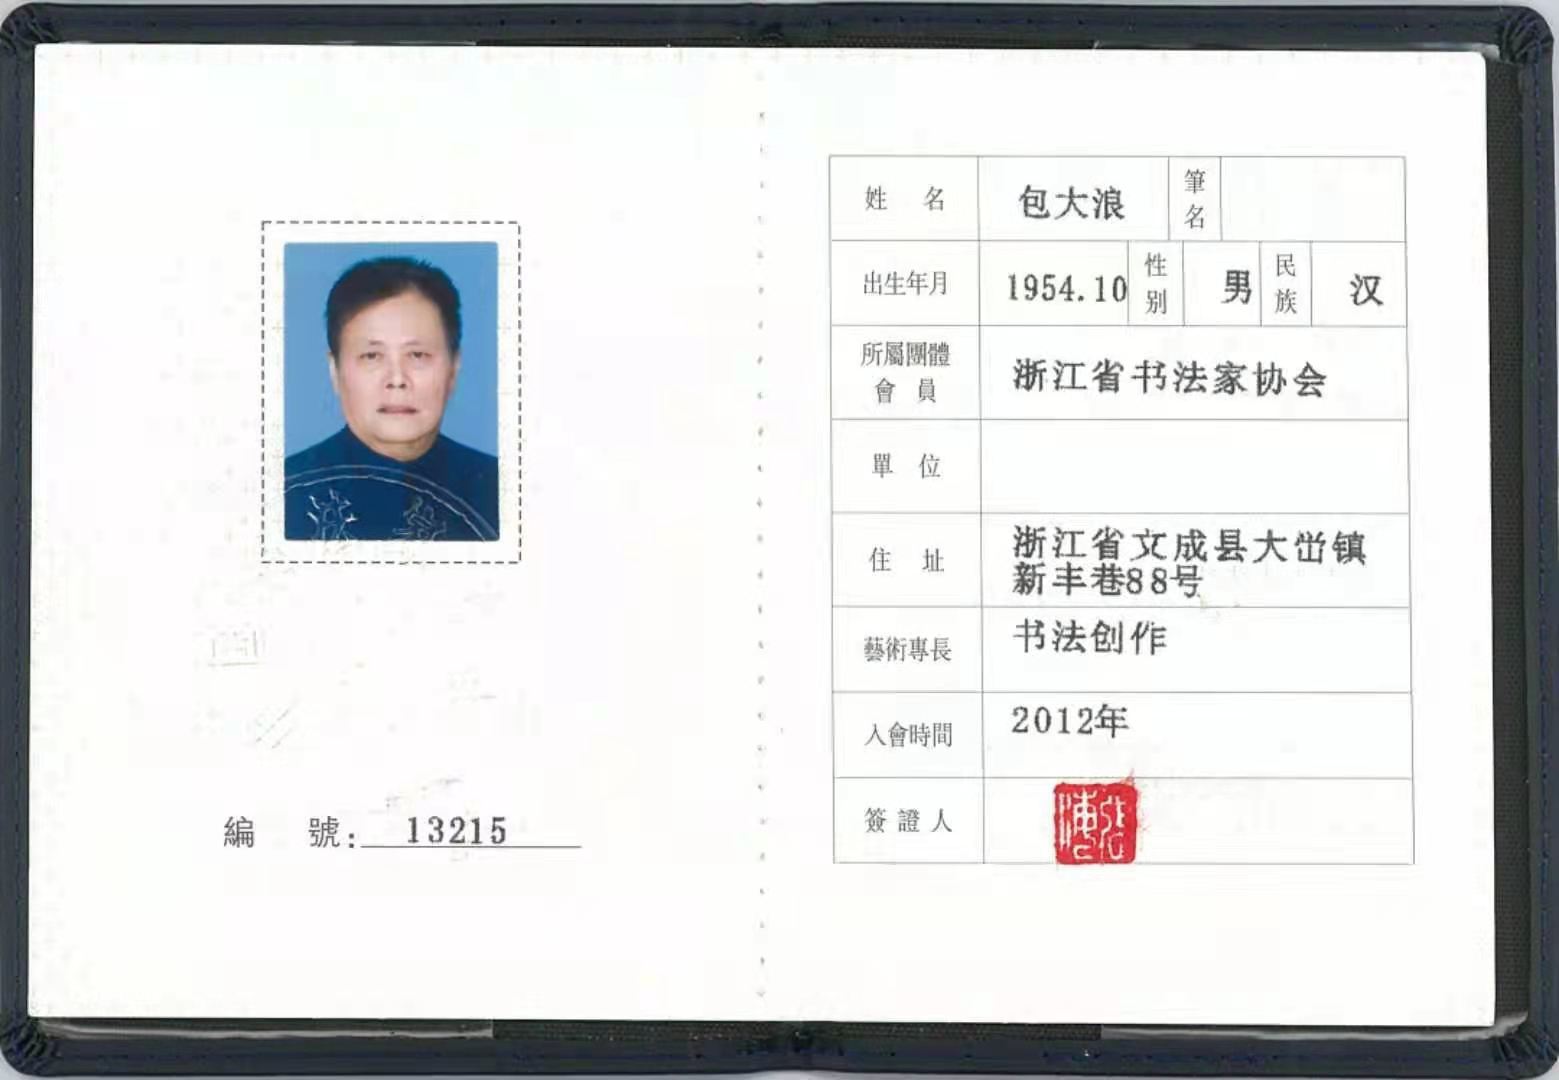 編 號: 13215
姓 名 包大浪 筆名
出生年月 1954.10 性别 男 民族 汉
所屬團體會 員 浙江省书法家协会
單 位
住 址 浙江省文成县大峃镇
新丰巷88号
藝術專長 书法创作
入會時間 2012年
簽證人